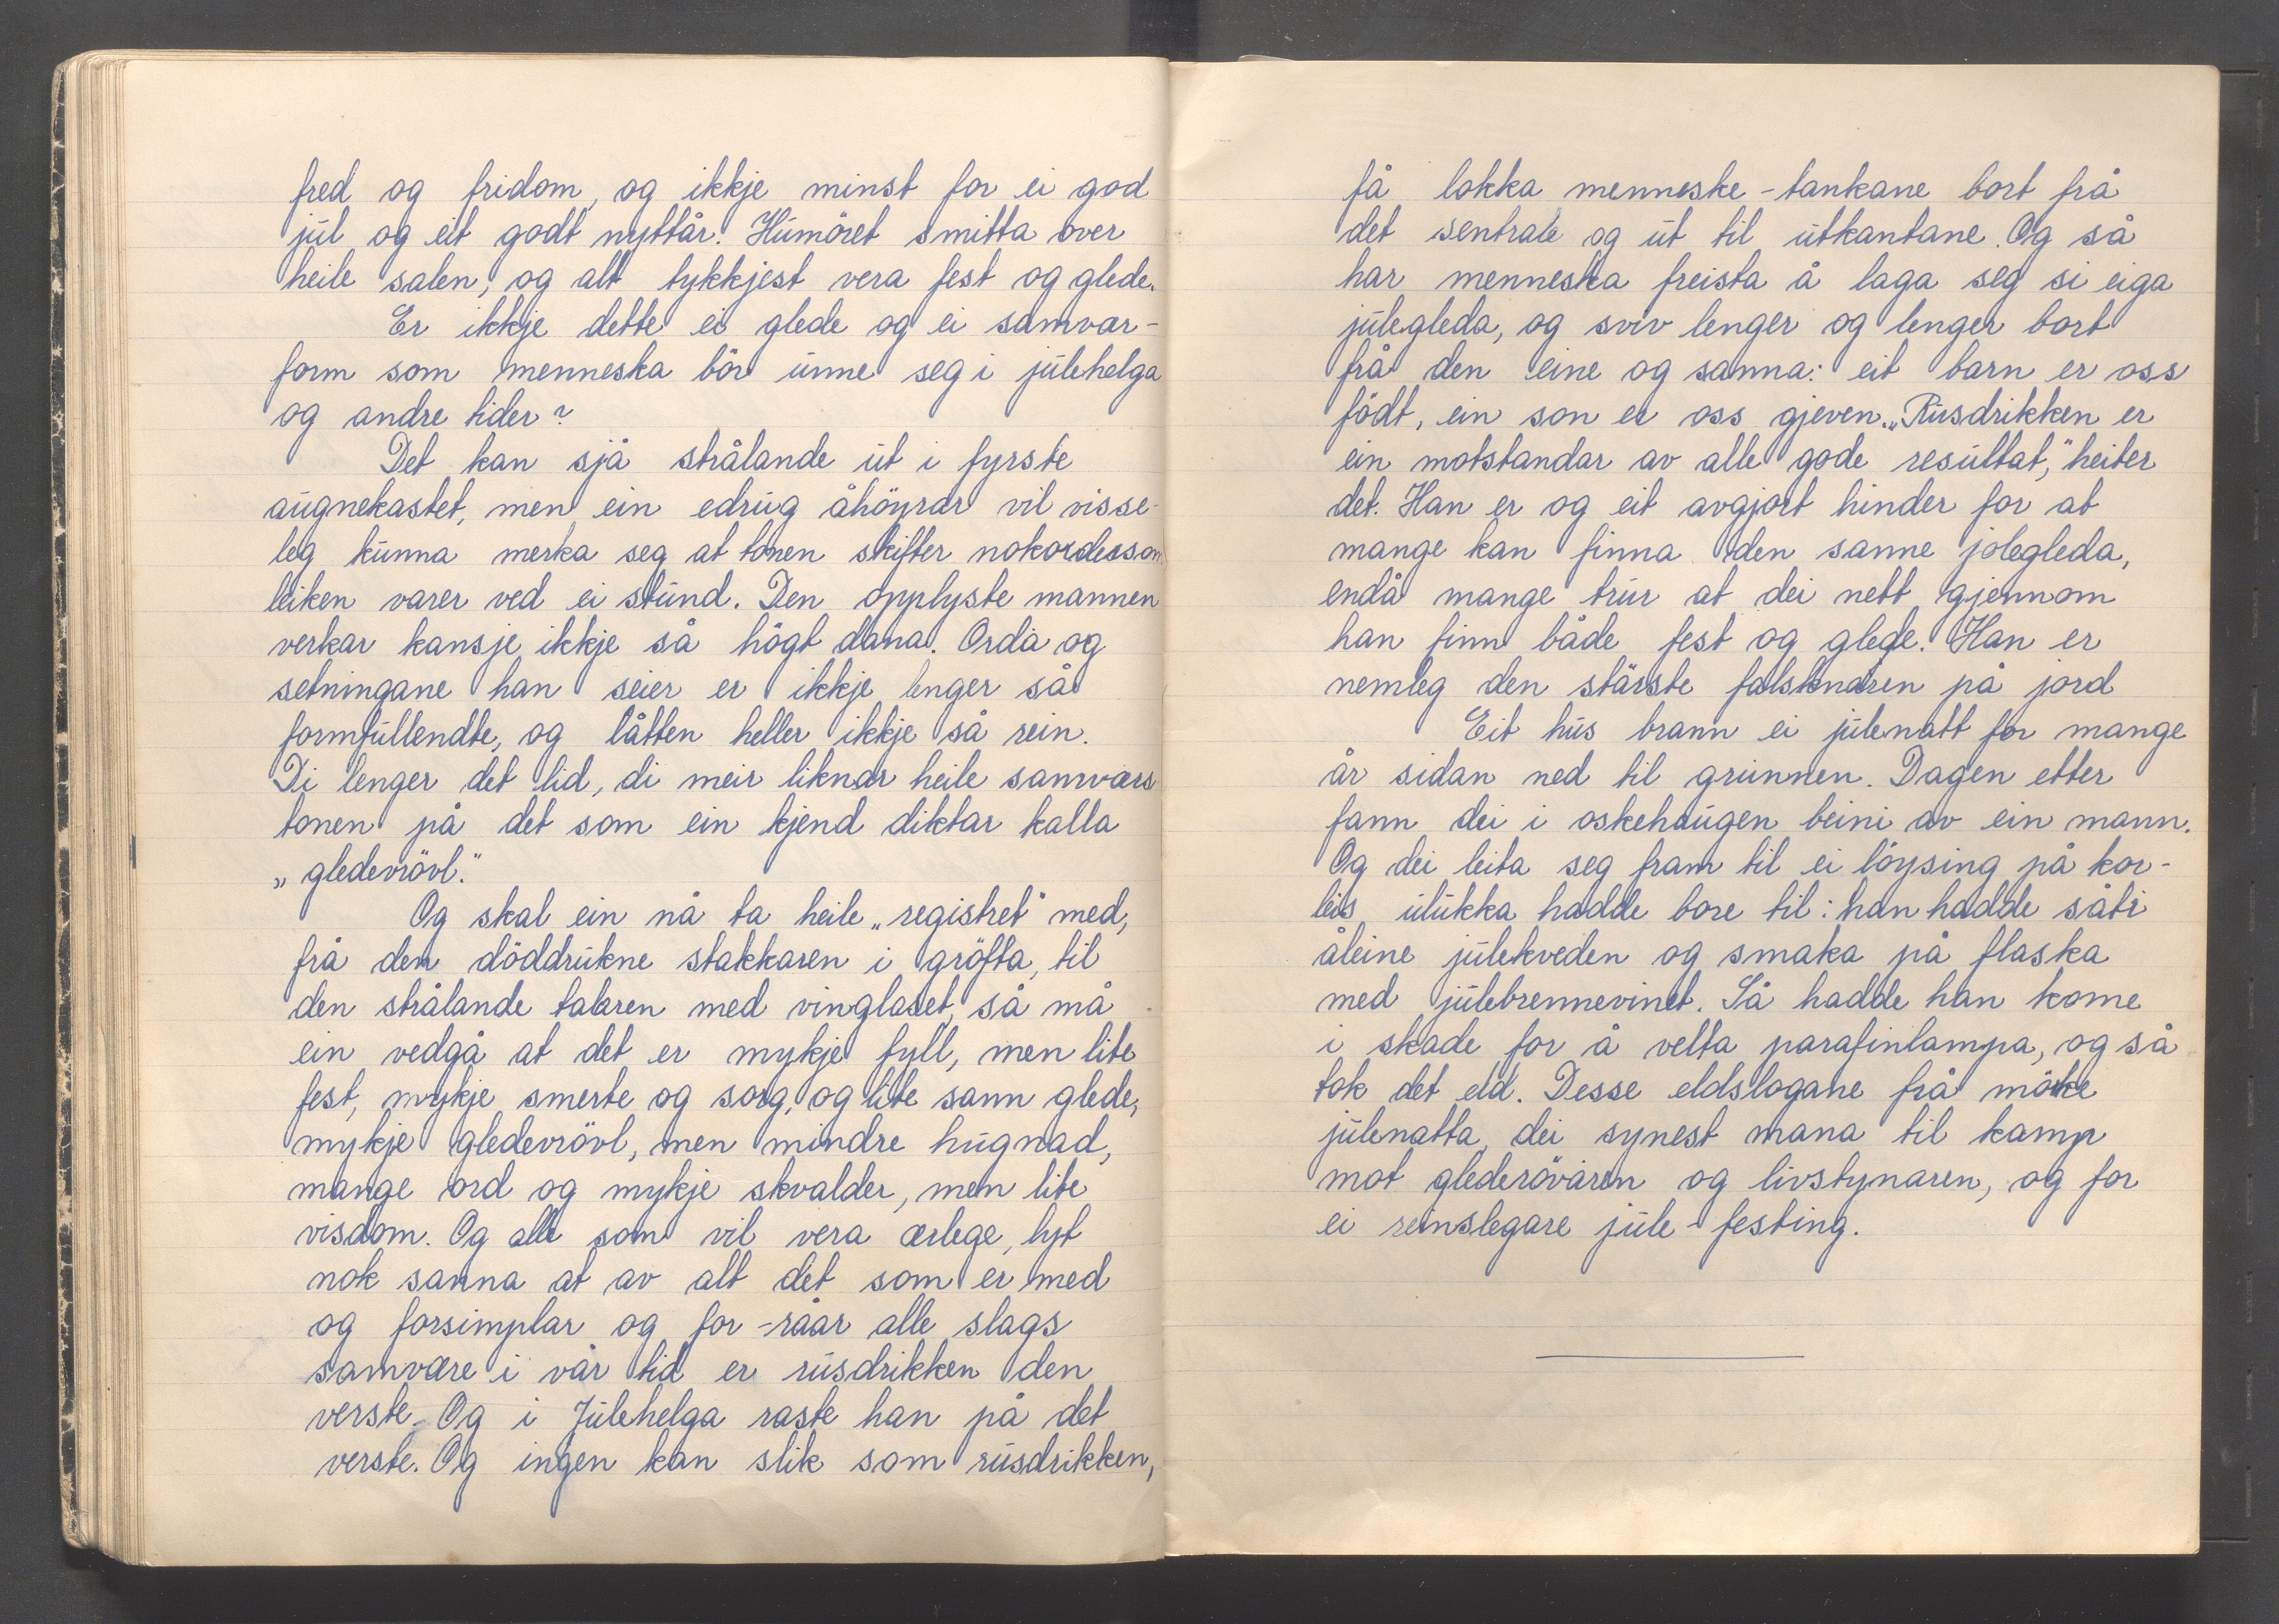 fred og fridom, og ikkje minst for ei god
jul og eit godt nyttår. Humöret smitta over
heile salen, og alt tykkjest vera fest og glede.
Er ikkje dette ei glede og ei samvær-
form som menneska bör unne seg i julehelga
og andre tider?
Det kan sjå strålande ut i fyrste
augnekastet, men ein edrug åhöyrar vil visse-
leg kunna merka seg at tonen skifter noko ettersom
leiken varer ved ei stund. Den opplyste mannen
verkar kansje ikkje så högt dana. Orda og
setningane han seier er ikkje lenger så
formfullendte, og låtten heller ikkje så rein.
Di lenger det lid, di meir liknar heile samværs
tonen på det som ein kjend diktar kalla
„gledevrövl."
Og skal ein nå ta heile „registret" med,
frå den döddrukne stakkaren i gröfta, til
den strålande talaren med vinglaset, så må
ein vedgå at det er mykje fyll, men lite
fest, mykje smerte og sorg, og lite sann glede,
mykje gledevrövl, men mindre hugnad,
mange ord og mykje skvalder, men lite
visdom. Og alle som vil vera ærlege, lyt
nok sanna at av alt det som er med
og forsimplar og for-råar alle slags
samvære i vår tid er rusdrikken den
verste. Og i Julehelga raste han på det
verste. Og ingen kan slik som rusdrikken,
få lokka menneske-tankane bort frå
det sentrale og ut til utkantane. Og så
har menneska freista å laga seg si eiga
julegleda, og sviv lenger og lenger bort
frå den eine og sanna: eit barn er oss
födt, ein son er oss gjeven. „Rusdrikken er
ein motstandar av alle gode resultat," heiter
det. Han er og eit avgjort hinder for at
mange kan finna den sanne jolegleda,
endå mange trur at dei nett gjennom
han finn både fest og glede. Han er
nemleg den störste falsknaren på jord
Eit hus brann ei julenatt for mange
år sidan ned til grunnen. Dagen etter
fann dei i oskehaugen beini av ein mann.
Og dei leita seg fram til ei löysing på kor-
leis ulukka hadde bore til: han hadde såti
åleine julekveden og smaka på flaska
med julebrennevinet. Så hadde han kome
i skade for å velta parafinlampa, og så
tok det eld. Desse eldslogane frå mörke
julenatta, dei synest mana til kamp
mot gledeövaren og livstynaren, og for
ei reinslegare jule-festing.